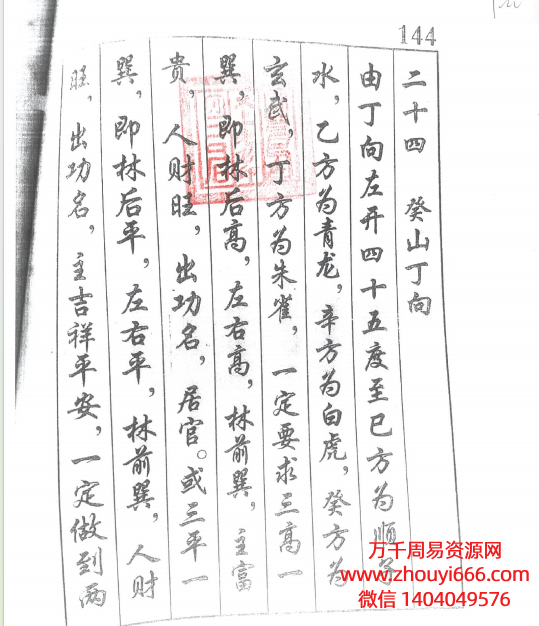 144
二十四 癸山丁向
由丁向左开四十五度至巳方为顺子
水，乙方为青龙，辛方为白虎，癸方为
玄武，丁方为朱雀，一定要求三高一
巽，即林后高，左右高，林前巽，主富
贵，人财旺，出功名，居官。或三平一
巽，即林后平，左右平，林前巽，人财
旺，出功名，主吉祥平安，一定做到两
万千周易资源网
www.zhouyi666.com
微信 1404049576